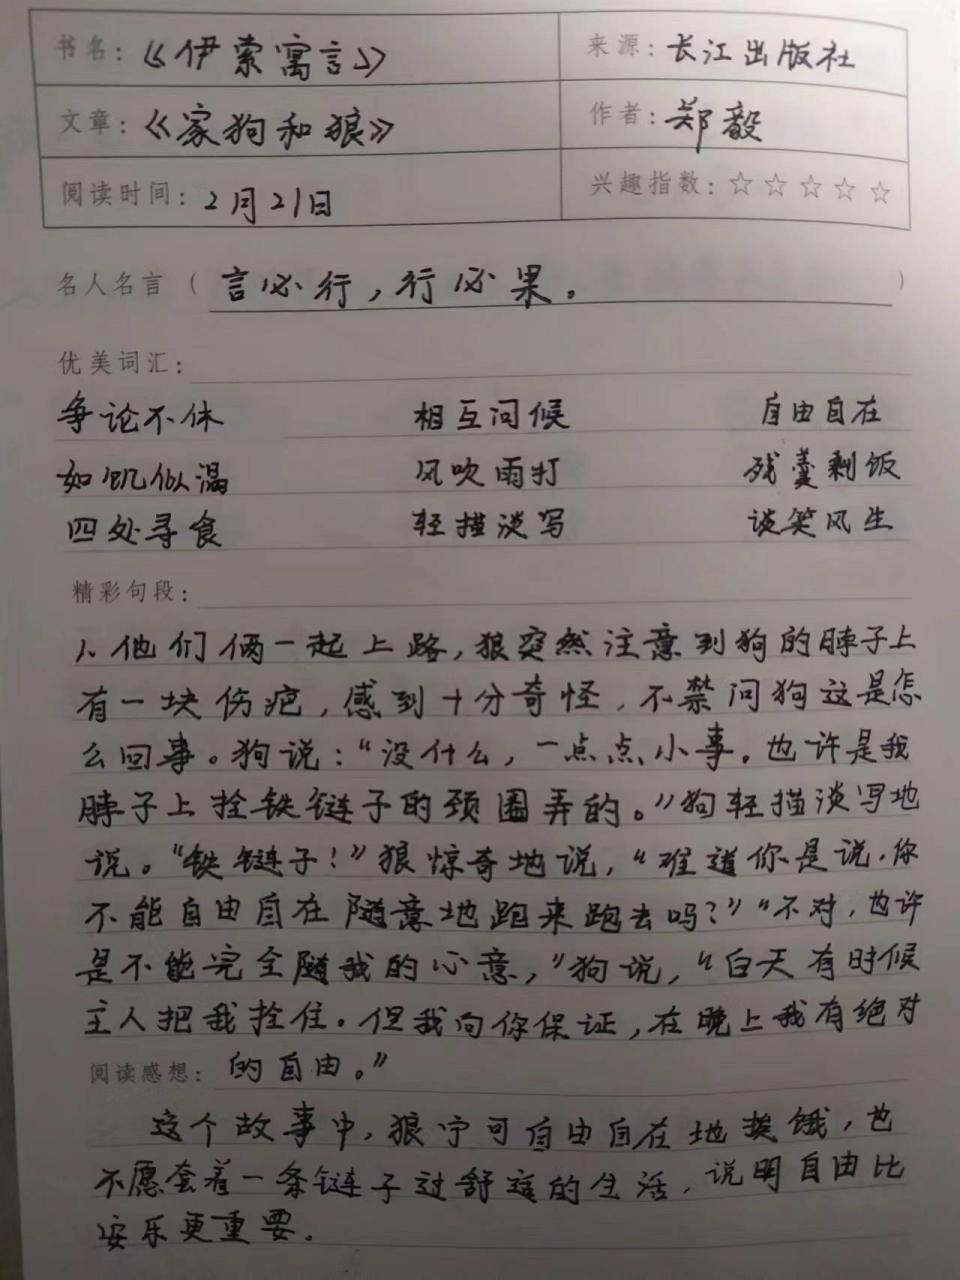 书名：《伊索寓言》 来源：长江出版社
文章：《家狗和狼》 作者：郑毅
阅读时间：2月21日 兴趣指数：☆☆☆☆☆
名人名言（言必行，行必果。）
优美词汇：
争论不休 相互问候 自由自在
如饥似渴 风吹雨打 残羹剩饭
四处寻食 轻描淡写 谈笑风生
精彩句段：
1、他们俩一起上路，狼突然注意到狗的脖子上
有一块伤疤，感到十分奇怪，不禁问狗这是怎
么回事。狗说：“没什么，一点点小事。也许是我
脖子上拴铁链子的颈圈弄的。”狗轻描淡写地
说。“铁链子！”狼惊奇地说，“难道你是说，你
不能自由自在随意地跑来跑去吗？”“不对，也许
是不能完全随我的心意，”狗说，“白天有时候
主人把我拴住。但我向你保证，在晚上我有绝对
阅读感想：的自由。”
这个故事中，狼宁可自由自在地挨饿，也
不愿套着一条链子过舒适的生活，说明自由比
安乐更重要。